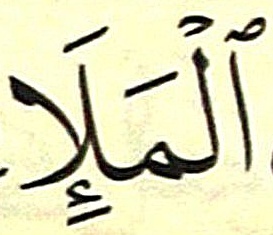 ٱلْمَلَإِ